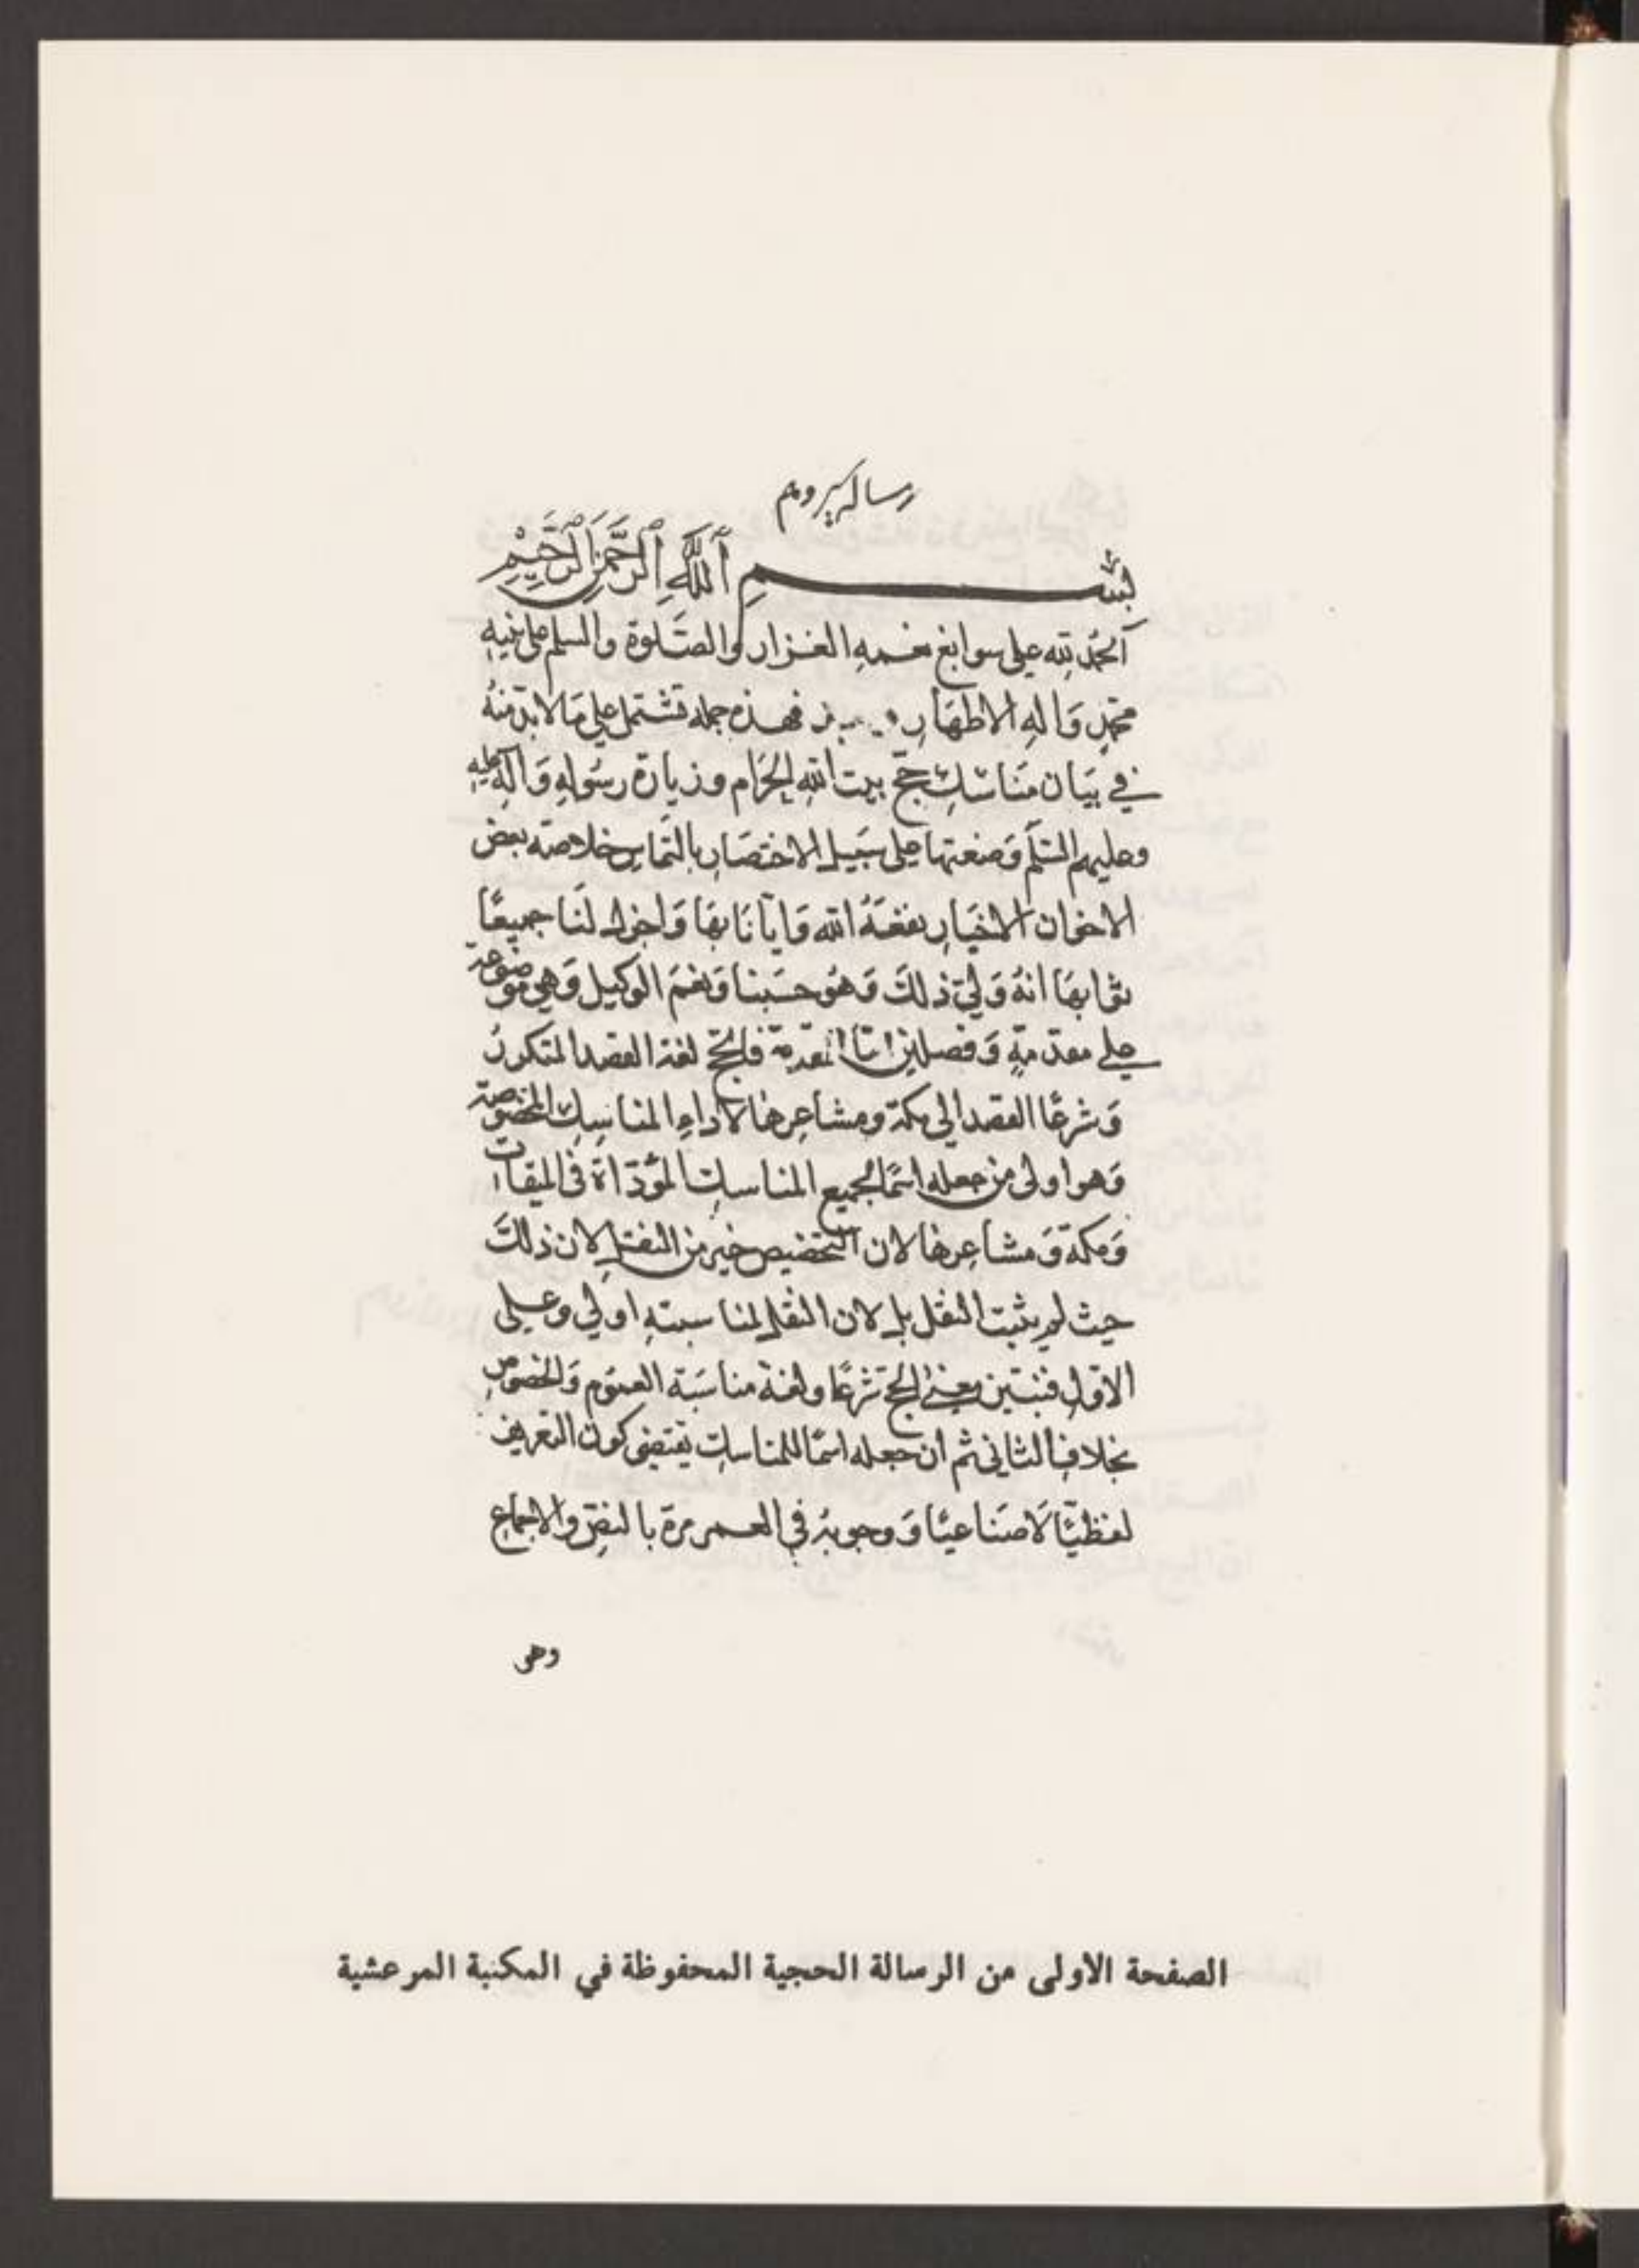 رساله سيوم
بسم الله الرحمن الرحيم
الحمد لله على سوابغ نعمه الغزار والصلوة والسلم على نبيه
محمد وآله الاطهار فهذه جمله تشتمل على ما لا بد منه
في بيان مناسك حج بيت الله الحرام وزيارة رسوله وآله عليه
وعليهم السلم وضعتها على سبيل الاختصار بالتماس خلاصة بعض
الاخوان الاخيار نفعه الله وايانا بها واجزل لنا جميعا
ثوابها انه ولي ذلك وهو حسبنا ونعم الوكيل وهي موضوعة
على مقدمة وفصلين اما المقدمة فالحج لغة القصد المتكرر
وشرعا القصد الى مكة ومشاعرها لاداء المناسك المخصوصة
وهو اولى من جعله اسما لجميع المناسك المؤداة في الميقات
ومكة ومشاعرها لان التخصيص خير من النقل لان ذلك
حيث لم يثبت النقل بل لان النقل لمناسبته اولي وعلى
الاول فبين معنى الحج شرعا ولغة مناسبة العموم والخصوص
بخلاف الثاني ثم ان جعله اسما للمناسك يقتضى كون التعريف
لفظيا لا صناعيا ووجوبه في العمر مرة بالنص والاجماع
وهى
الصفحة الأولى من الرسالة الحجية المحفوظة في المكتبة المرعشية